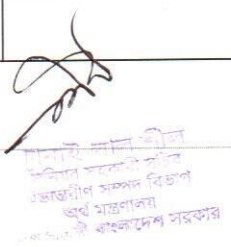 কানাই লাল শীল
সিনিয়র সহকারী সচিব
অভ্যন্তরীণ সম্পদ বিভাগ
অর্থ মন্ত্রণালয়
বাংলাদেশ সরকার